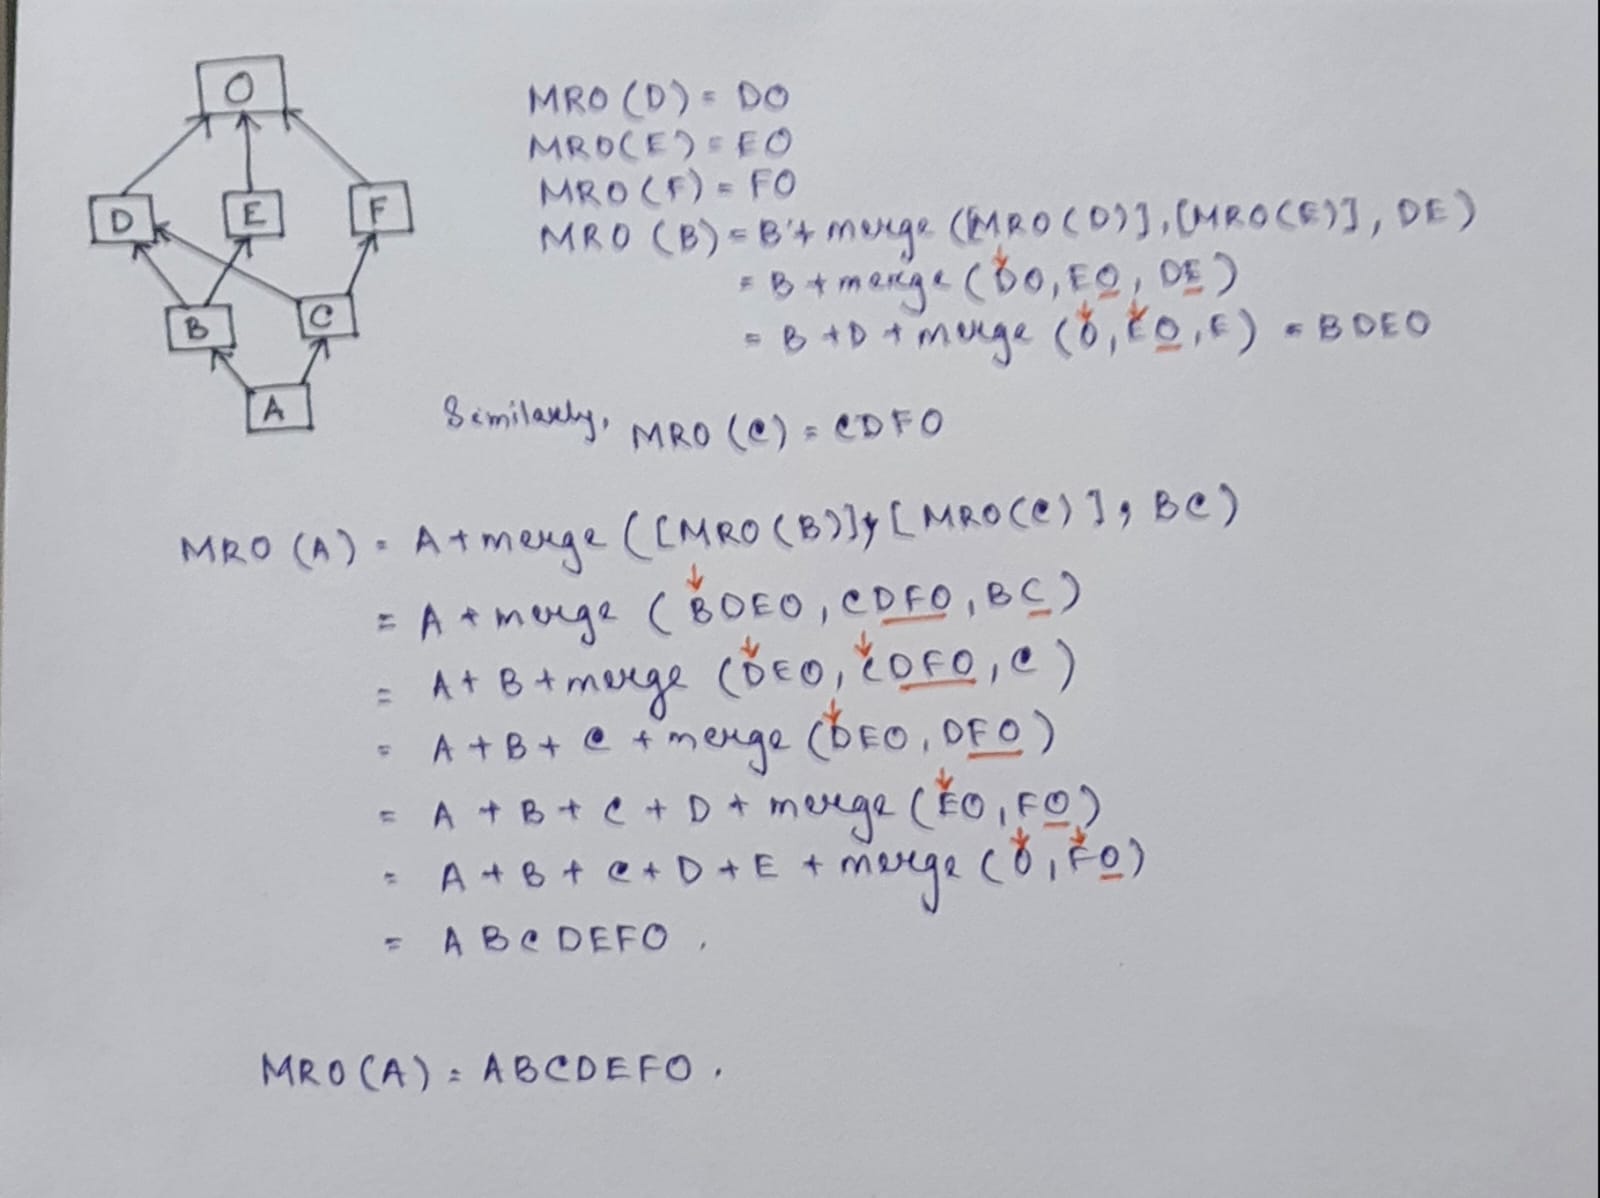 O
D E F
B C
A
MRO (D) = DO
MRO(E) = EO
MRO (F) = FO
MRO (B) = B + merge ([MRO(D)], [MRO(E)], DE)
= B + merge (DO, EO, DE)
= B + D + merge (O, EO, E) = BDEO
Similarly, MRO (C) = CDFO
MRO (A) = A + merge ([MRO(B)], [MRO(C)], BC)
= A + merge (BDEO, CDFO, BC)
= A + B + merge (DEO, CDFO, C)
= A + B + C + merge (DEO, DFO)
= A + B + C + D + merge (EO, FO)
= A + B + C + D + E + merge (O, FO)
= ABCDEFO.
MRO(A) = ABCDEFO.